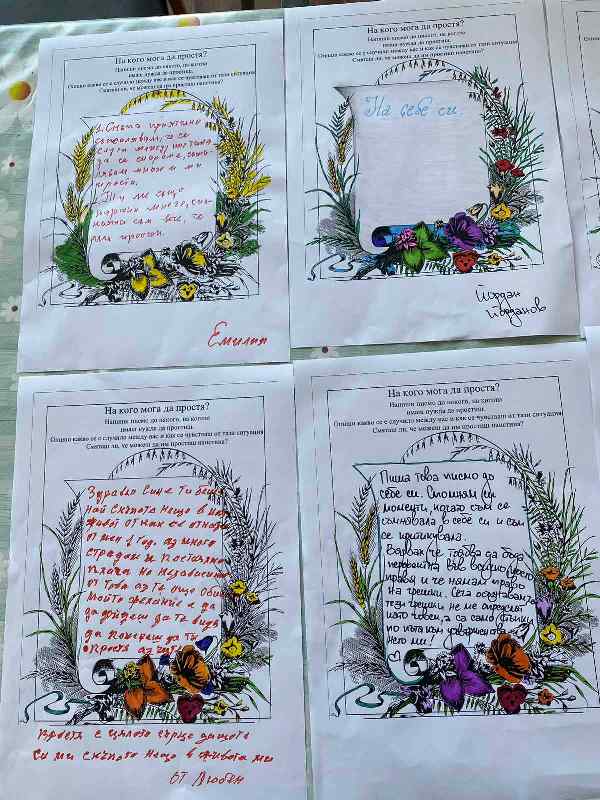 На кого мога да простя?
Напиши писмо до някого, на когото
имаш нужда да простиш.
Опиши какво се е случило между вас и как се чувстваш от тази ситуация
Смяташ ли, че можеш да им простиш наистина?
1. Снъха
съжалявам, че се
случи между нас така
да се скараме, съжа
лявам много и ми
прости.
2. Ти ме също
много, сил
сам все, че
простих.
Емилия
На кого мога да простя?
Напиши писмо до някого, на когото
имаш нужда да простиш.
Опиши какво се е случило между вас и как се чувстваш от тази ситуация
Смяташ ли, че можеш да им простиш наистина?
На себе си.
Йордан
Йорданов
На кого мога да простя?
Напиши писмо до някого, на когото
имаш нужда да простиш.
Опиши какво се е случило между вас и как се чувстваш от тази ситуация
Смяташ ли, че можеш да им простиш наистина?
Здравей Сине Ти беше
най Скъпото нещо в моя
живот от как се отказа
от мен 1 год. аз много
страдам и постоянно
плача Но Независимо
от това аз те още Обичам
Мойто желание е да
да дойдеш да те видя
да поискаш да ти
простя аз
Простя с цялото сърце защото
Си ми скъпото нещо в живота ми
от Любен
На кого мога да простя?
Напиши писмо до някого, на когото
имаш нужда да простиш.
Опиши какво се е случило между вас и как се чувстваш от тази ситуация
Смяташ ли, че можеш да им простиш наистина?
Пиша това писмо до
себе си. Спомням си
моменти, когато съм се
съмнявала в себе си и съм
се критикувала.
Вярвах, че трябва да бъда
перфектна във всичко, което
правя и че нямам право
на грешки. Сега осъзнавам, че
тези грешки не ме определят
като човек, а са само стъпки
по пътя към усъвършенства-
нето ми!